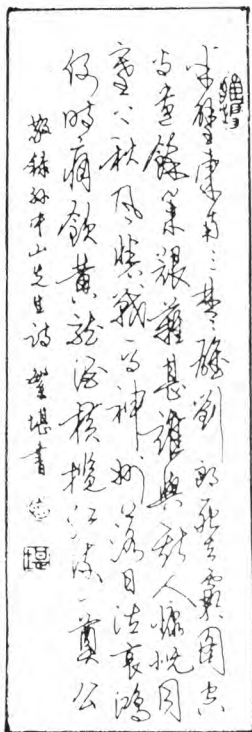 半壁東南三楚雄劉郎死去霸圖空
尚遺餘業艱難甚誰與斯人慷慨同
塞上秋風悲戰馬神州落日泣哀鴻
何時痛飲黃龍酒橫攬江流一奠公
敬錄孫中山先生詩 堪書